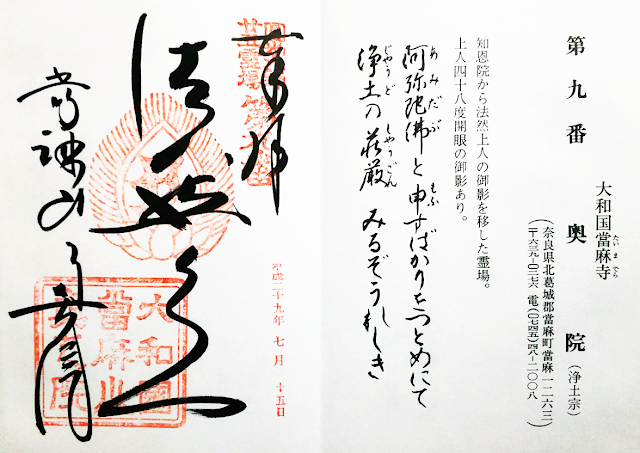 第九番 奥院(浄土宗)
大和国當麻寺
たいまでら
(奈良県北葛城郡當麻町當麻一二六三)
(〒六三九-〇二七六 電(〇七四五)四八-二〇〇八)
知恩院から法然上人の御影を移した霊場。
上人四十八度開眼の御影あり。
あみだぶ もふ
阿弥陀佛と申すばかりをつとめにて
じやうど しやうごん
浄土の荘厳 みるぞうれしき
奉拝
平成二十九年 七月 十五日
大和國
當麻山
奥院